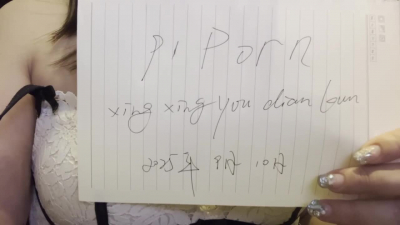 Pi Porn
xing xing you dian kun
2025年 9月 10日